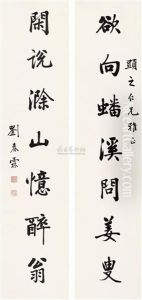 欲向蟠溪問姜叟
顯之仁兄雅正
閑說滁山憶醉翁
劉春霖